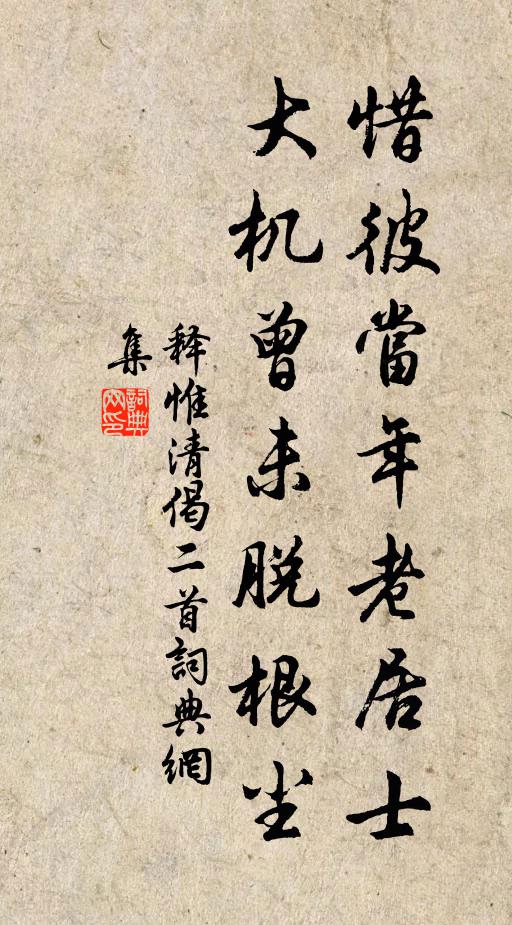 惜彼當年老居士
大机曾未脱根尘
释惟清偈二首詞典網
集
詞典網印